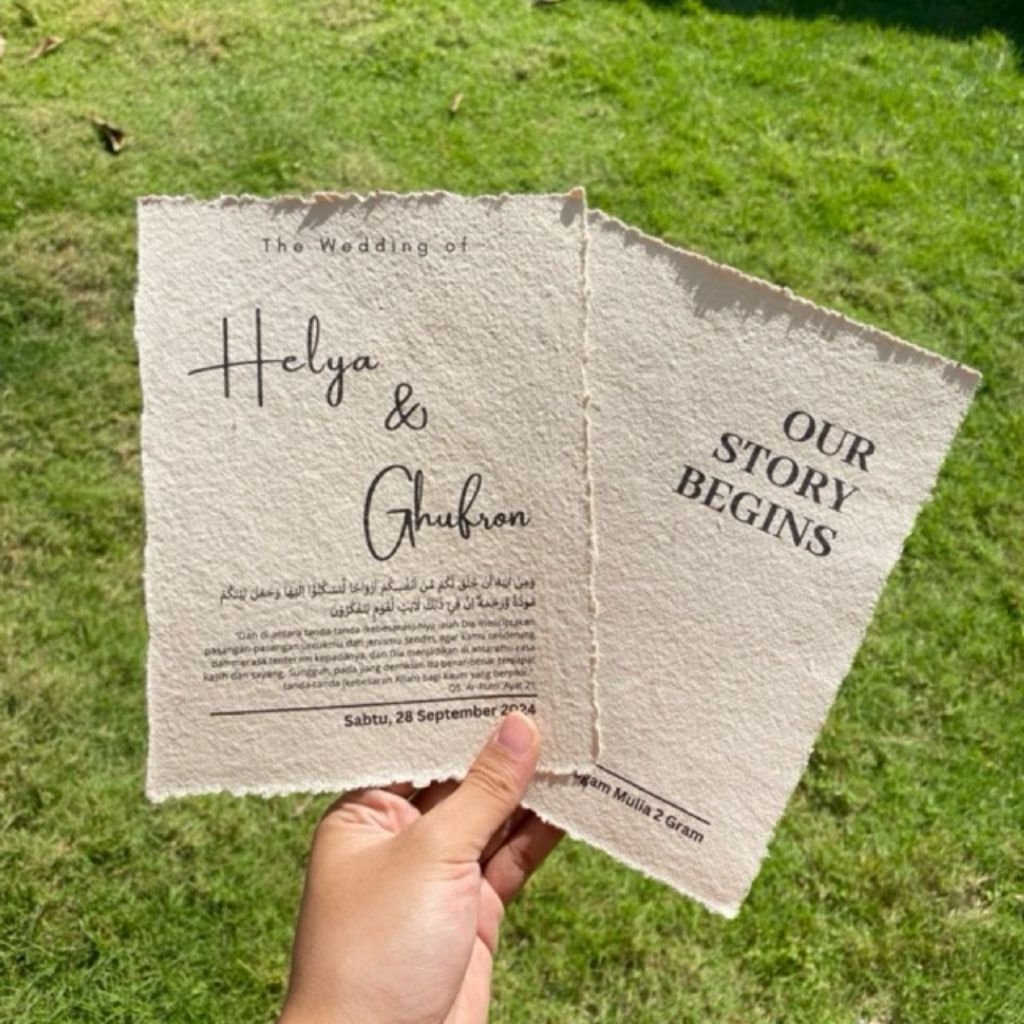 The Wedding of
Helya
&
Ghufron
وَمِنْ اٰيٰتِهٖٓ اَنْ خَلَقَ لَكُمْ مِّنْ اَنْفُسِكُمْ اَزْوَاجًا لِّتَسْكُنُوْٓا اِلَيْهَا وَجَعَلَ بَيْنَكُمْ
مَّوَدَّةً وَّرَحْمَةً ۗاِنَّ فِيْ ذٰلِكَ لَاٰيٰتٍ لِّقَوْمٍ يَّتَفَكَّرُوْنَ
"Dan di antara tanda-tanda (kebesaran)-Nya ialah Dia menciptakan
pasangan-pasangan untukmu dari jenismu sendiri, agar kamu cenderung
dan merasa tenteram kepadanya, dan Dia menjadikan di antaramu rasa
kasih dan sayang. Sungguh, pada yang demikian itu benar-benar terdapat
tanda-tanda (kebesaran Allah) bagi kaum yang berpikir."
QS. Ar-Rum :Ayat 21
Sabtu, 28 September 2024
OUR
STORY
BEGINS
Mulia 2 Gram